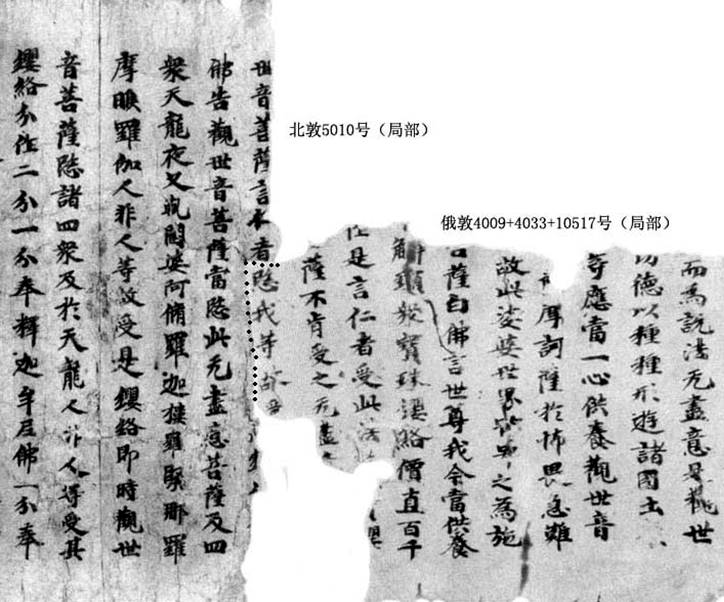 北敦5010号（局部）
俄敦4009+4033+10517号（局部）
而為說法无盡意是觀世
德以種種形遊諸國土
等應當一心供養觀世音
摩訶薩於怖畏急難
故此娑婆世界皆之為施
菩薩白佛言世尊我今當供養
解頸衆寶珠瓔珞價直百千
作是言仁者受此法
薩不肯受之无盡
世音菩薩言仁者愍我等故受
佛告觀世音菩薩當愍此无盡意菩薩及四
衆天龍夜叉乹闥婆阿脩羅迦樓羅緊那羅
摩睺羅伽人非人等故受是纓絡即時觀世
音菩薩愍諸四衆及於天龍人非人等受其
纓絡分作二分一分奉釋迦牟尼佛一分奉